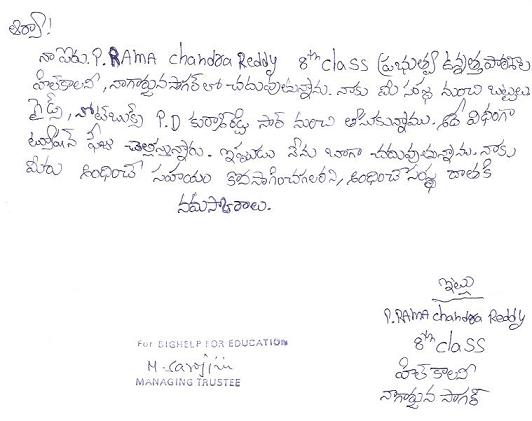 ఆర్యా!
నా పేరు P. RAMA chandra Reddy 8th class ప్రభుత్వ ఉన్నత పాఠశాల
హిల్ కాలని, నాగార్జునసాగర్ లో చదువుతున్నాను. నాకు మీ సంస్థ నుంచి బట్టలు
గైడ్స్, నోట్ బుక్స్ P.D సార్ నుంచి తీసుకున్నాము. అదే విధంగా
ట్యూషన్ ఫీజు చెల్లిస్తున్నారు. ఇప్పుడు నేను బాగా చదువుతున్నాను. నాకు
మీరు అందించే సహాయం కొనసాగించగలరని, అందించే సంస్థ దాతకి
నమస్కారాలు.
ఇట్లు
P. RAMA chandra Reddy
8th class
హిల్ కాలని
నాగార్జున సాగర్
For BIGHELP FOR EDUCATION
M. Sarojini
MANAGING TRUSTEE